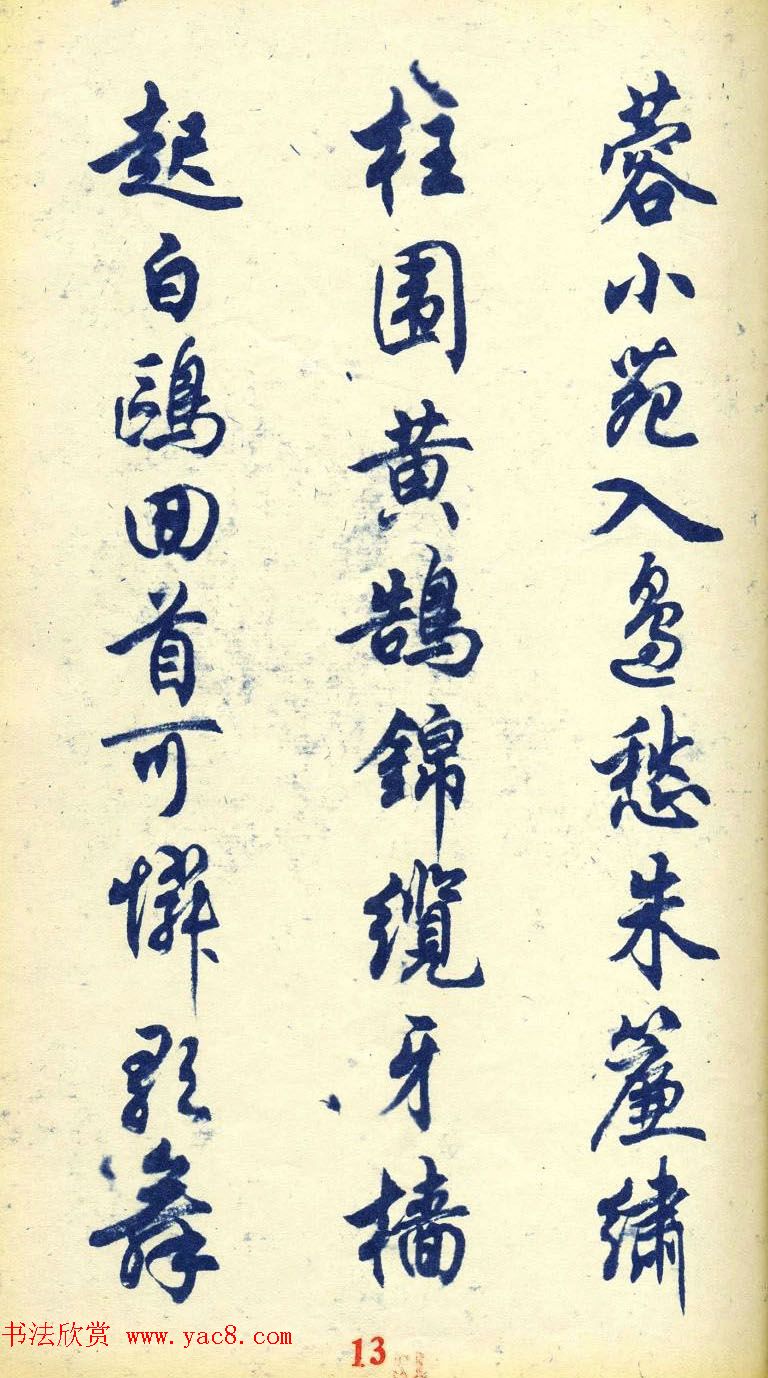 蓉小苑入邊愁朱簾繡
柱围黄鵠錦纜牙檣
起白鷗回首可憐歌舞
书法欣赏 www.yac8.com
13